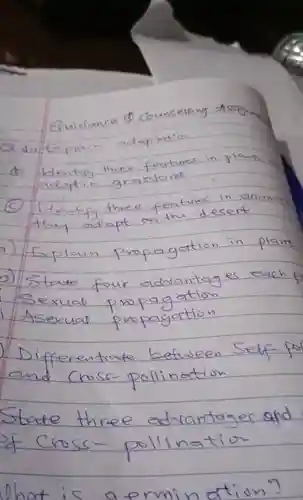 Guidance & Counselling
adaptation
Identify three features in plan
adapt in grassland
C Identify three features in anim
they adapt in the desert
Explain propagation in plant
State four advantages each
Sexual propagation
Asexual propagation
Differentiate between Self-pol
and Cross-pollination
State three advantages and
of Cross-pollination
What is germination?